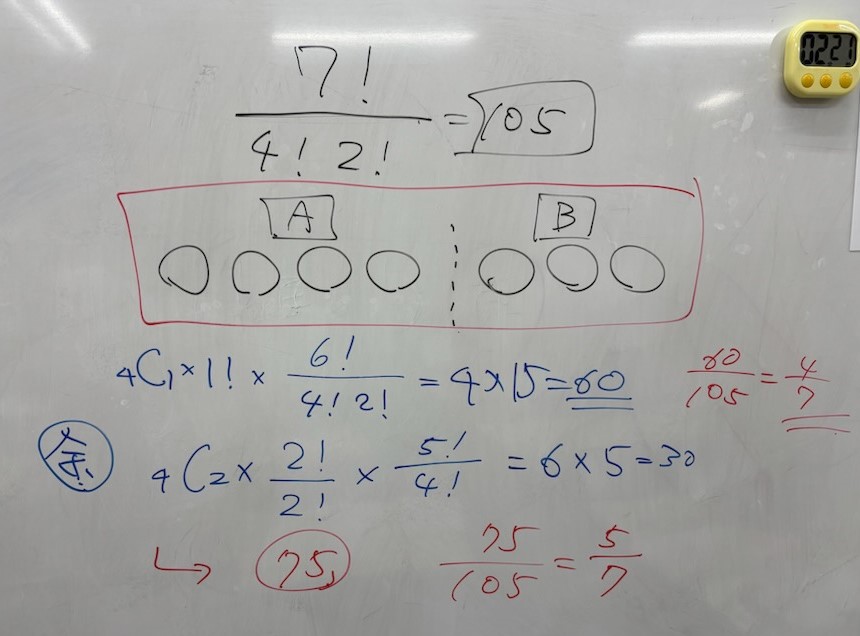 02:21
7! / 4! 2! = 105
A B
₄C₁ × 1! × 6! / 4! 2! = 4 × 15 = 60
60 / 105 = 4 / 7
余
₄C₂ × 2! / 2! × 5! / 4! = 6 × 5 = 30
↳ 75
75 / 105 = 5 / 7